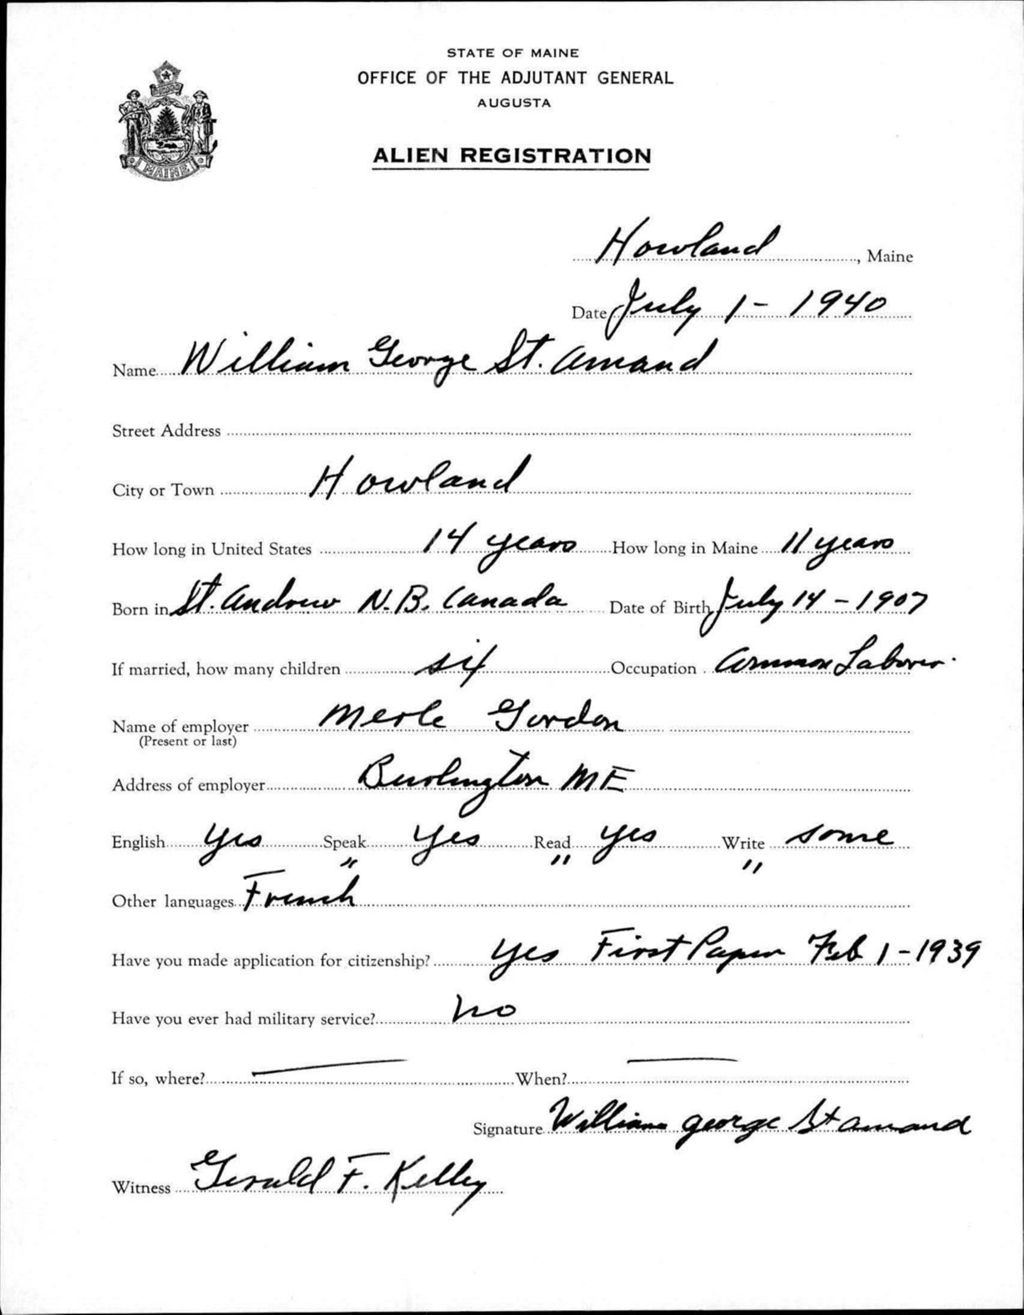 STATE OF MAINE
OFFICE OF THE ADJUTANT GENERAL
AUGUSTA
ALIEN REGISTRATION
MAINE
Howland, Maine
Date July 1 - 1940
Name William George St. Amand
Street Address
City or Town Howland
How long in United States 14 years How long in Maine 11 years
Born in St. Andrew N.B. Canada Date of Birth July 14 - 1907
If married, how many children six Occupation Common Laborer.
Name of employer Merle Gordon
(Present or last)
Address of employer Burlington ME
English Yes Speak Yes Read yes Write some
" " "
Other languages French
Have you made application for citizenship? yes First Paper Feb 1 - 1939
Have you ever had military service? no
If so, where? — When? —
Signature William george St amand
Witness Gerald F. Kelley